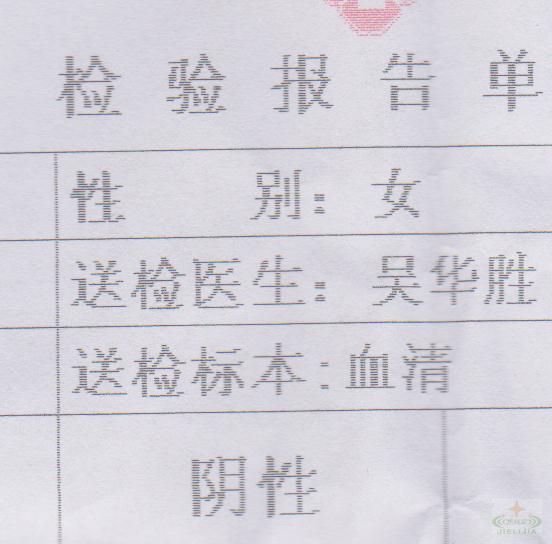 检验报告单
性 别: 女
送检医生: 吴华胜
送检标本:血清
阴性
JIELIJIA